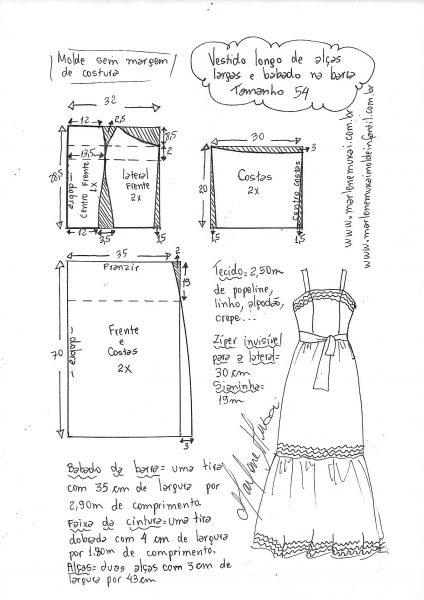 Molde sem margem
de costura
Vestido longo de alças
largas e babado na barra
Tamanho 54
www.marlenemukai.com.br
www.marlenemukaimoldeinfantil.com.br
32
12
2,5
8,5
2
13,5
28,5
dobra
Centro Frente
1x
lateral
Frente
2x
12
3,5
1,5
30
3
20
Costas
2x
Centro Costas
1,5
1,5
35
2
Franzir
19
70
dobra
Frente
e
Costas
2x
3
Tecido= 2,50m
de popeline,
linho, algodão,
crepe...
Zíper invisível
para a lateral=
30 cm
Sianinha=
19m
Marlene Mukai
Babado da barra= uma tira
com 35 cm de largura por
2,90m de comprimento.
Faixa da cintura= uma tira
dobrada com 4 cm de largura
por 1.80m de comprimento.
Alças= duas alças com 3 cm de
largura por 43cm